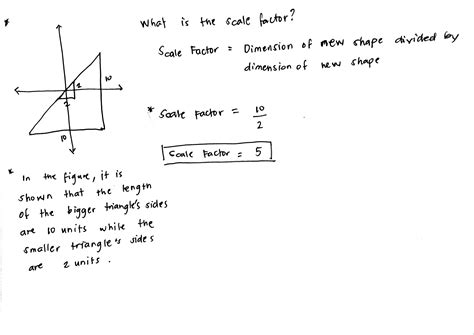 What is the scale factor?
Scale Factor = Dimension of new shape divided by
dimension of new shape
2
2
10
10
* Scale Factor = 10
2
Scale Factor = 5
* In the figure, it is
shown that the length
of the bigger triangle's sides
are 10 units while the
smaller triangle's sides
are 2 units.